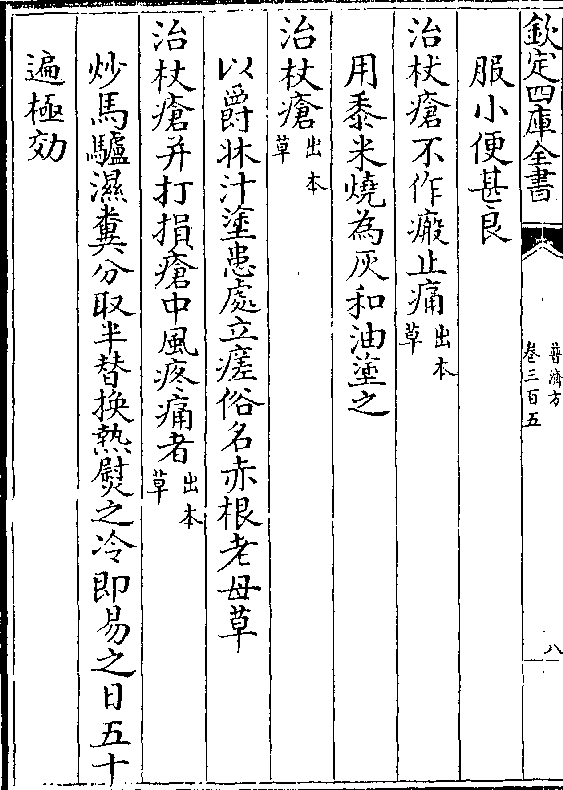 欽定四庫全書
普濟方
卷三百五
八
服小便甚良
治杖瘡不作瘢止痛出本草
用黍米燒為灰和油塗之
治杖瘡出本草
以爵牀汁塗患處立瘥俗名赤根老母草
治杖瘡并打損瘡中風疼痛者出本草
炒馬驢濕糞分取半替換熱熨之冷即易之日五十
遍極効